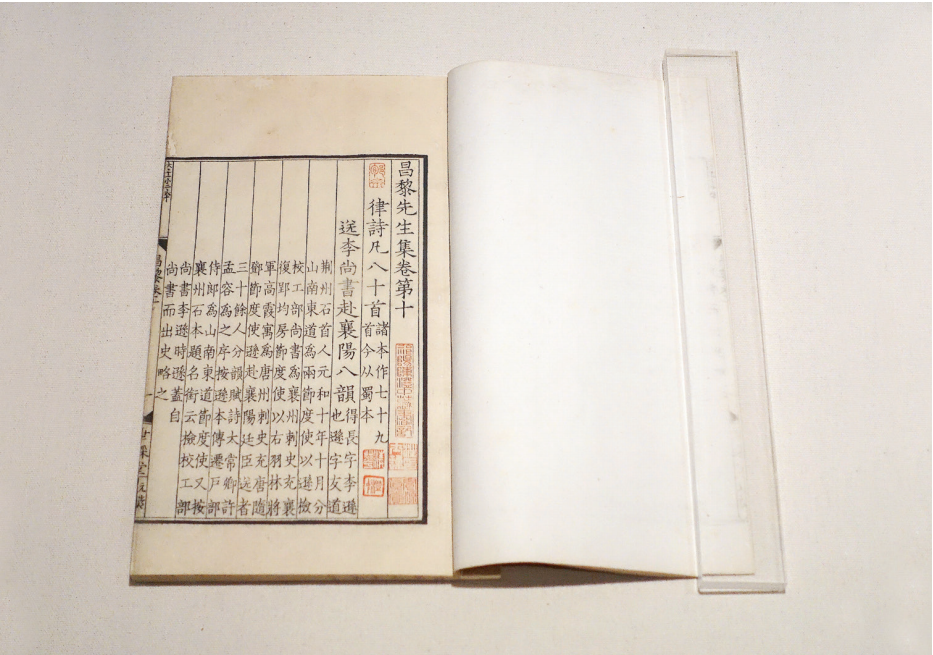 昌黎先生集卷第十
律詩凡八十首
諸本作七十九
首今从蜀本
送李尚書赴襄陽八韻
得長字李遜
也遜字友道
荆州石首人元和十年十月分
山南東道為兩節度使以遜檢
校工部尚書為襄州刺史充襄
復郢均房節度使以右羽林將
軍高霞寓為唐州刺史充唐隨
鄧節度使遜赴襄陽廷臣送者
三十餘人分韻賦詩太常卿許
孟容為之序按遜本傳遷戶部
侍郎為山南東道節度使又按
襄州石本題名銜云檢校工部
尚書李遜時遜蓋自
尚書而出史略之